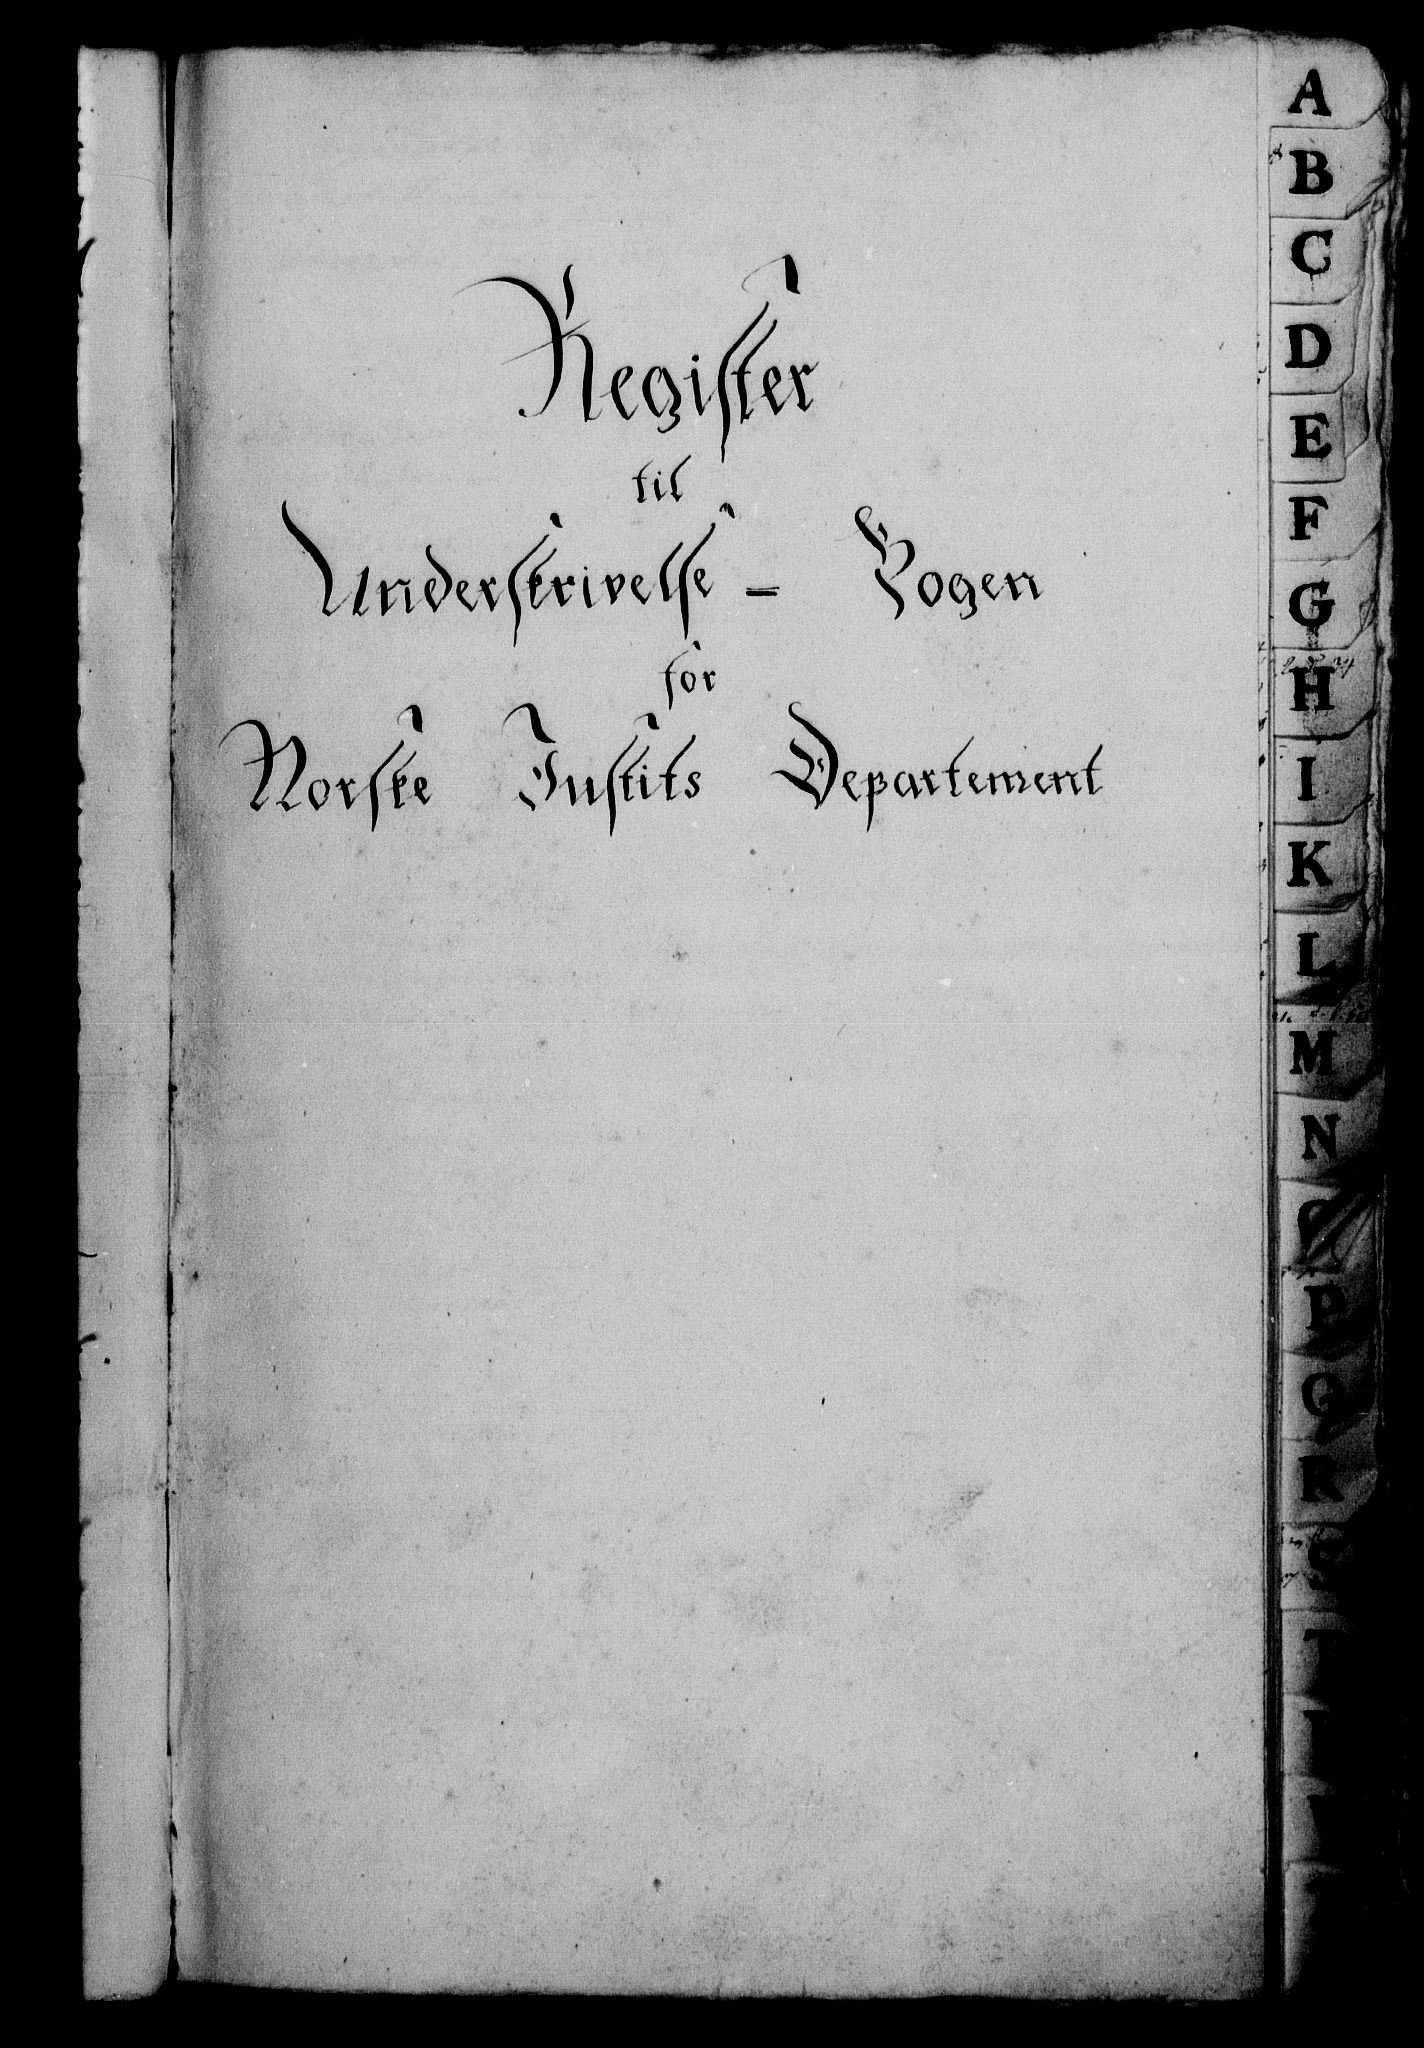 Register
til
Underskrivelse = Bogen
for
Norske Justits Departement
A
B
C
D
E
F
G
H
I
K
L
M
N
O
P
Q
R
S
T